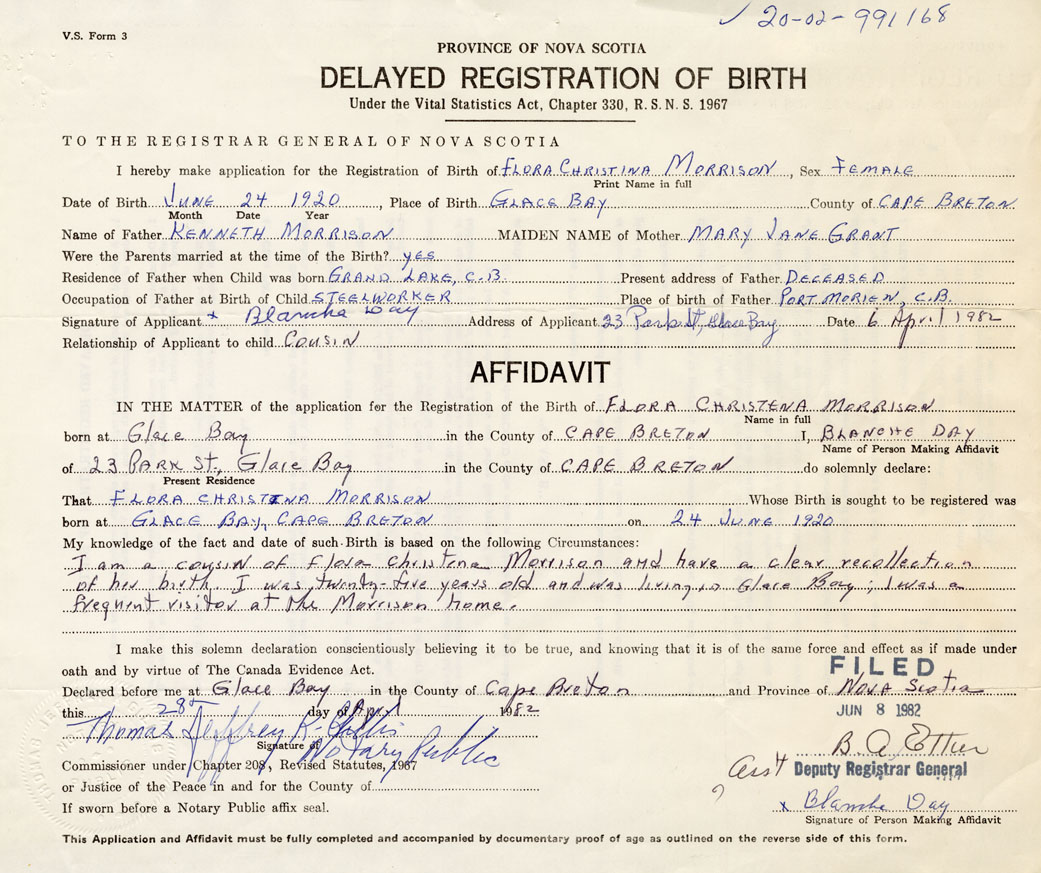 ✓ 20-02-991168
V.S. Form 3
PROVINCE OF NOVA SCOTIA
DELAYED REGISTRATION OF BIRTH
Under the Vital Statistics Act, Chapter 330, R.S.N.S. 1967
TO THE REGISTRAR GENERAL OF NOVA SCOTIA
I hereby make application for the Registration of Birth of FLORA CHRISTINA MORRISON, Sex FEMALE
Print Name in full
Date of Birth JUNE 24 1920, Place of Birth GLACE BAY County of CAPE BRETON
Month Date Year
Name of Father KENNETH MORRISON MAIDEN NAME of Mother MARY JANE GRANT
Were the Parents married at the time of the Birth? YES
Residence of Father when Child was born GRAND LAKE, C.B. Present address of Father DECEASED
Occupation of Father at Birth of Child STEELWORKER Place of birth of Father PORT MORIEN, C.B.
Signature of Applicant x Blanche Day Address of Applicant 23 Park St, Glace Bay Date 6 April 1982
Relationship of Applicant to child COUSIN
AFFIDAVIT
IN THE MATTER of the application for the Registration of the Birth of FLORA CHRISTENA MORRISON
Name in full
born at Glace Bay in the County of CAPE BRETON I, BLANCHE DAY
Name of Person Making Affidavit
of 23 PARK St., Glace Bay in the County of CAPE BRETON do solemnly declare:
Present Residence
That FLORA CHRISTINA MORRISON Whose Birth is sought to be registered was
born at GLACE BAY, CAPE BRETON on 24 JUNE 1920
My knowledge of the fact and date of such Birth is based on the following Circumstances:
I am a cousin of Flora Christena Morrison and have a clear recollection
of her birth. I was twenty-five years old and was living in Glace Bay; I was a
frequent visitor at the Morrison home.
I make this solemn declaration conscientiously believing it to be true, and knowing that it is of the same force and effect as if made under
oath and by virtue of The Canada Evidence Act.
FILED
Declared before me at Glace Bay in the County of Cape Breton and Province of Nova Scotia
this 28 day of April 1982
JUN 8 1982
Thomas Jeffrey K.
Signature of
Notary Public
B. A.
Commissioner under Chapter 208, Revised Statutes, 1967
Asst Deputy Registrar General
or Justice of the Peace in and for the County of
x Blanche Day
If sworn before a Notary Public affix seal.
Signature of Person Making Affidavit
This Application and Affidavit must be fully completed and accompanied by documentary proof of age as outlined on the reverse side of this form.